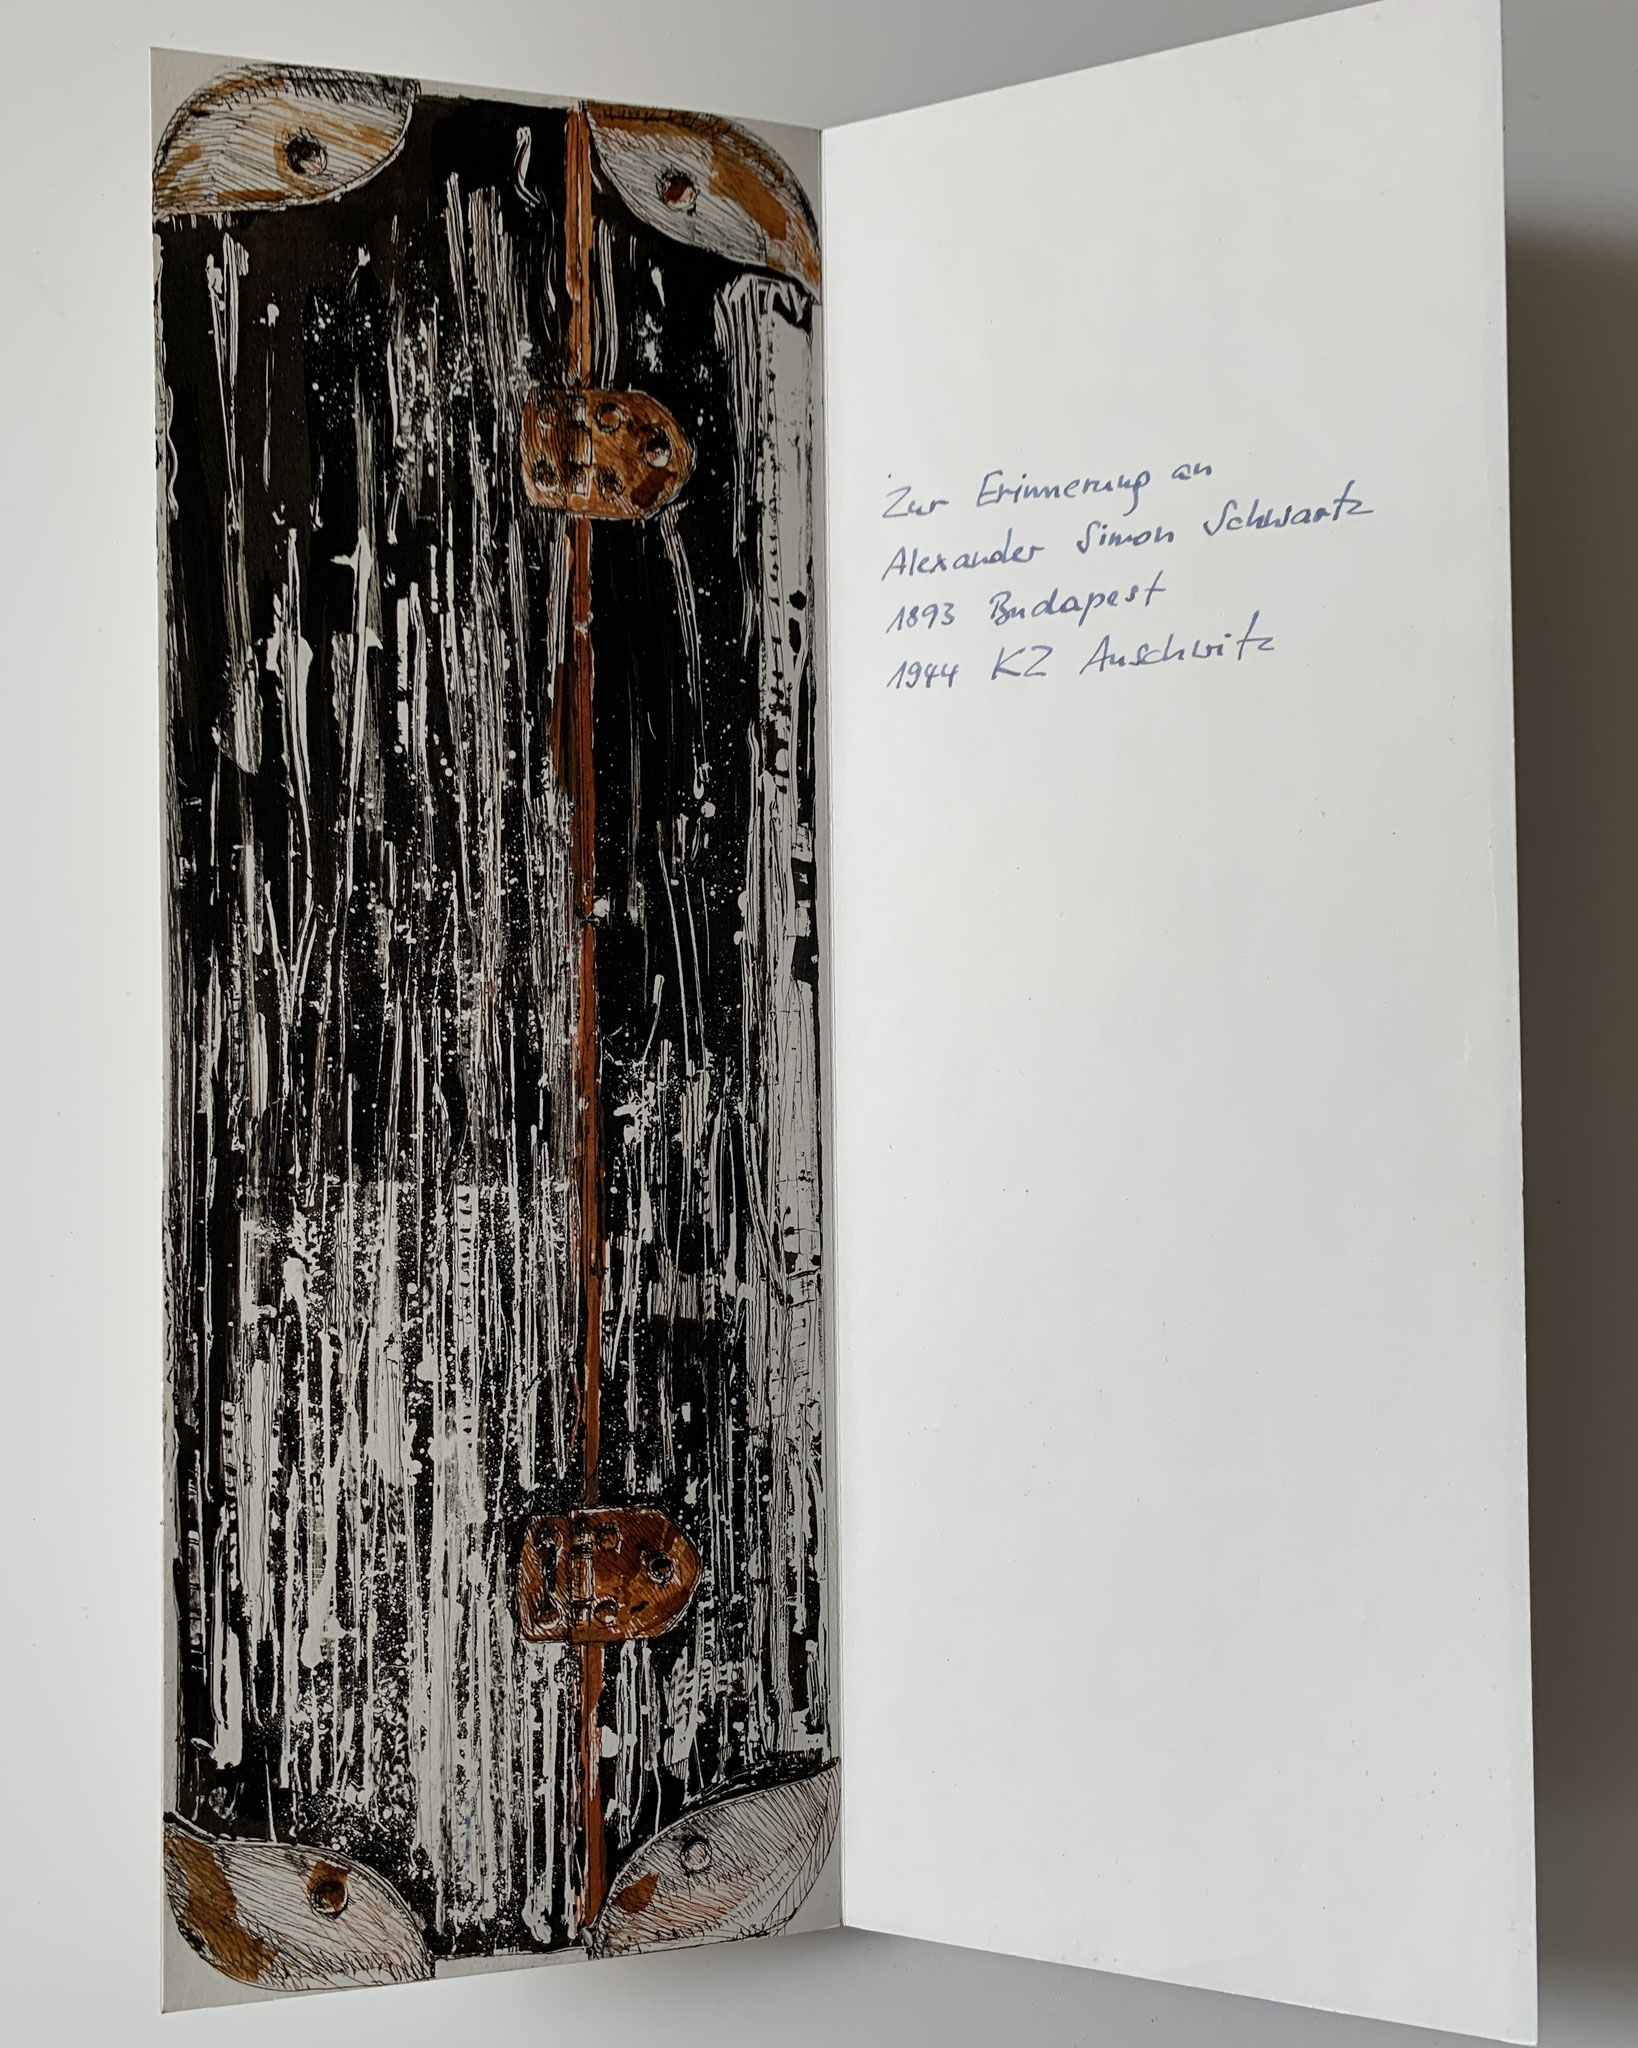 Zur Erinnerung an
Alexander Simon Schwartz
1893 Budapest
1944 KZ Auschwitz